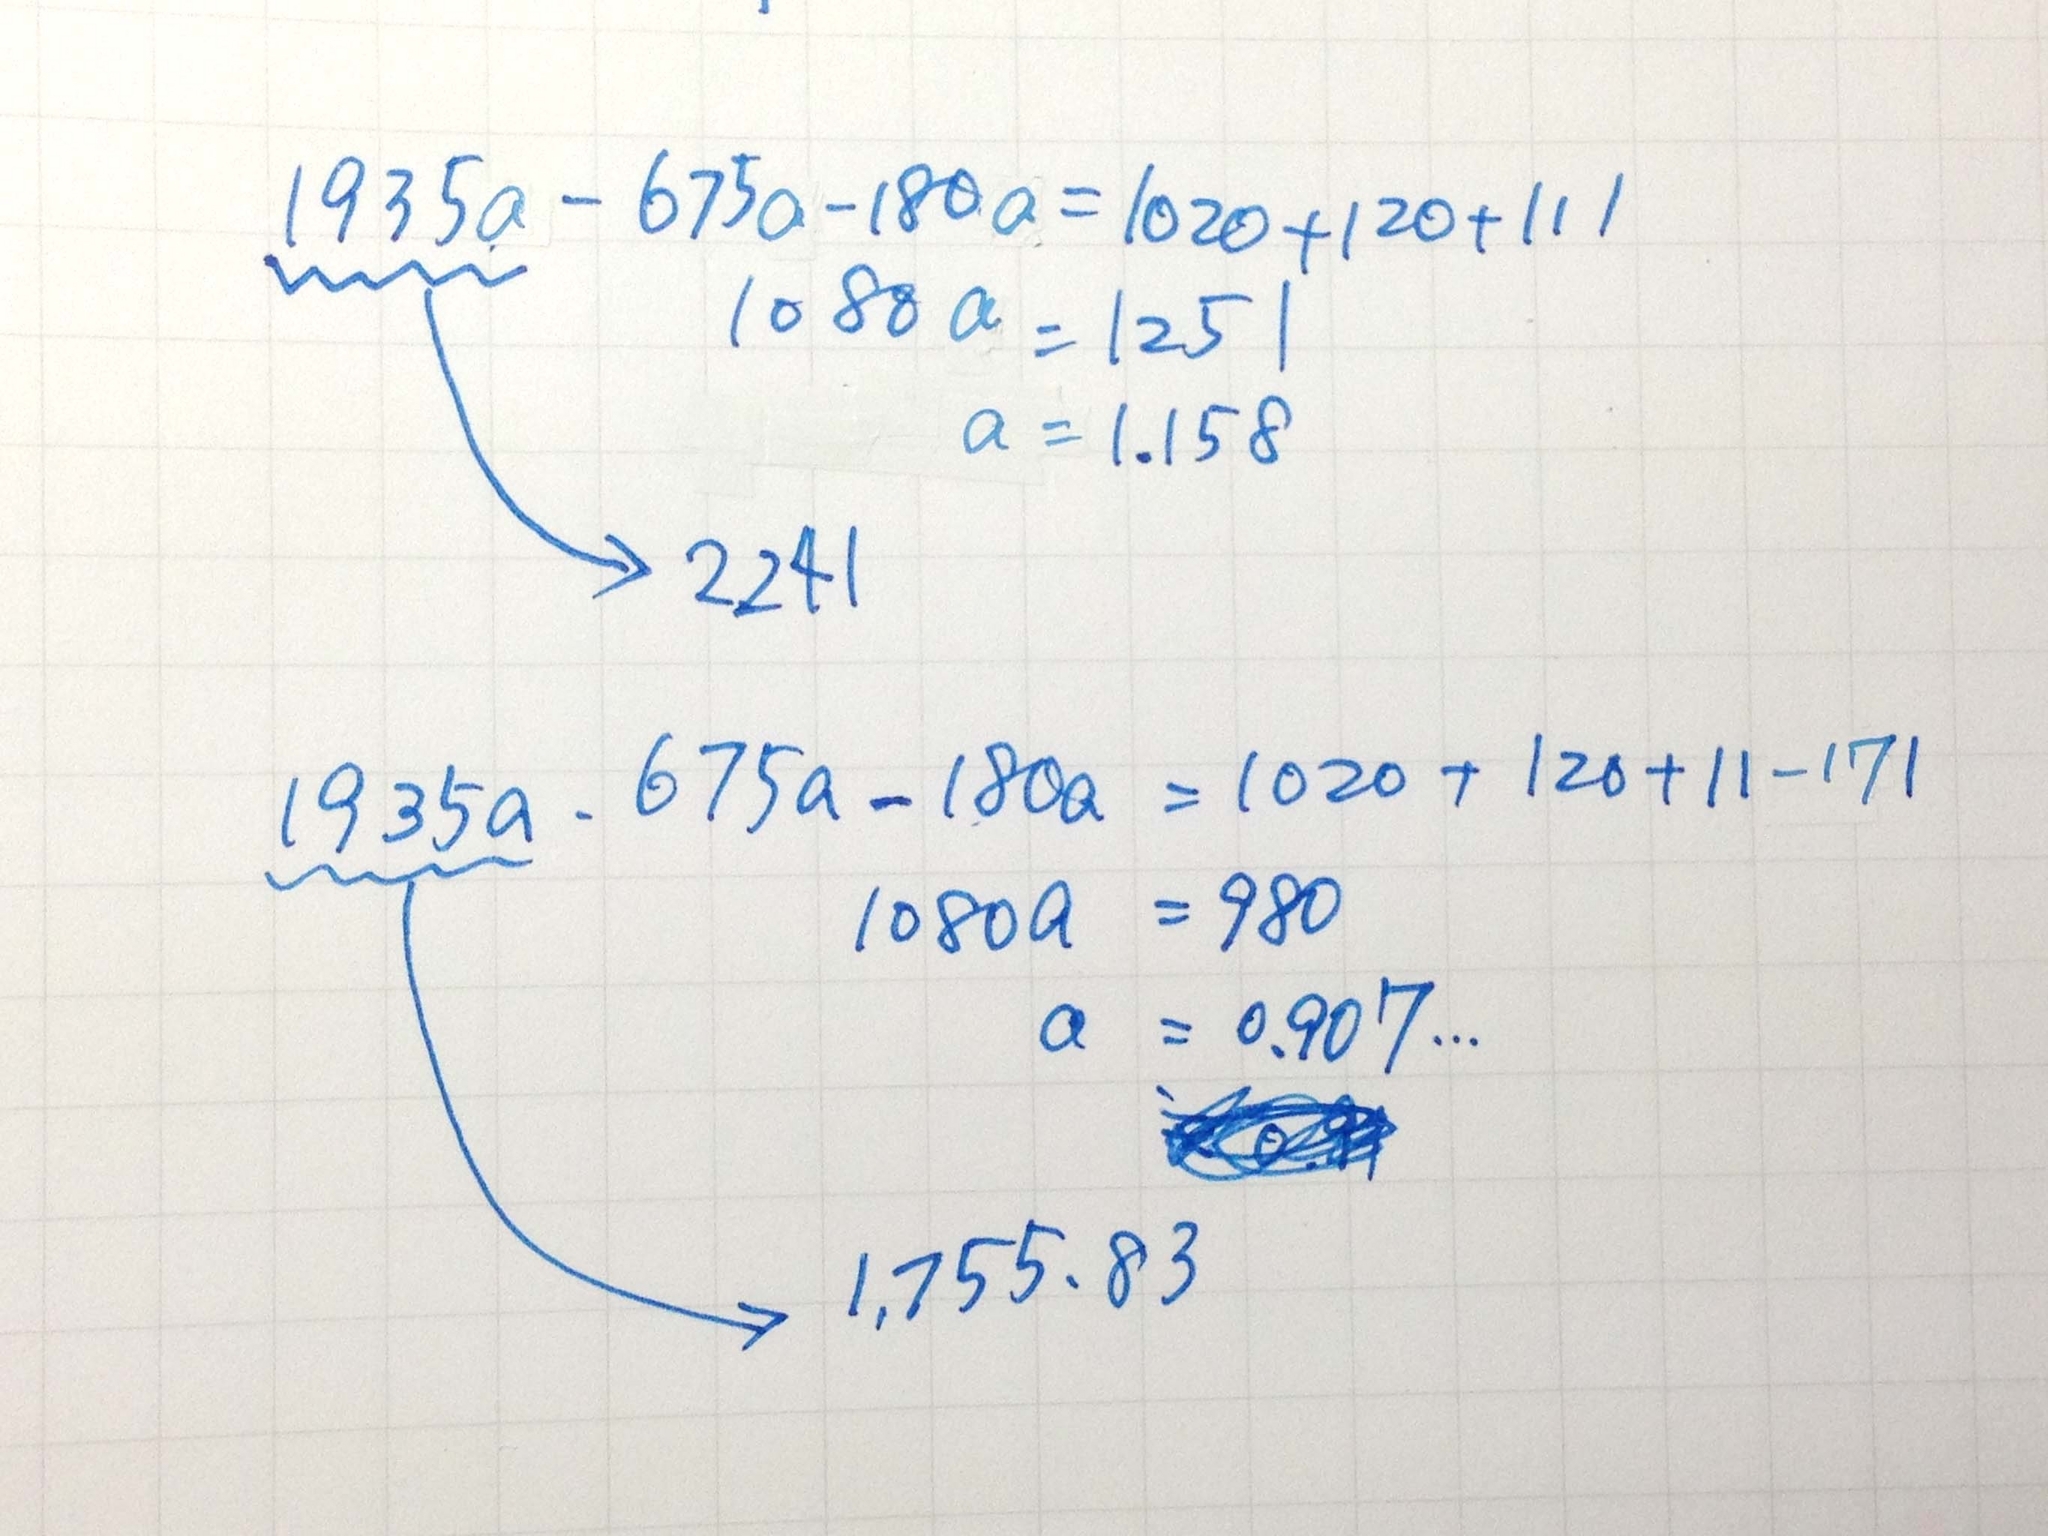 1935a - 675a - 180a = 1020 + 120 + 111
1080a = 1251
a = 1.158
2241
1935a - 675a - 180a = 1020 + 120 + 11 - 171
1080a = 980
a = 0.907...
1,755.83